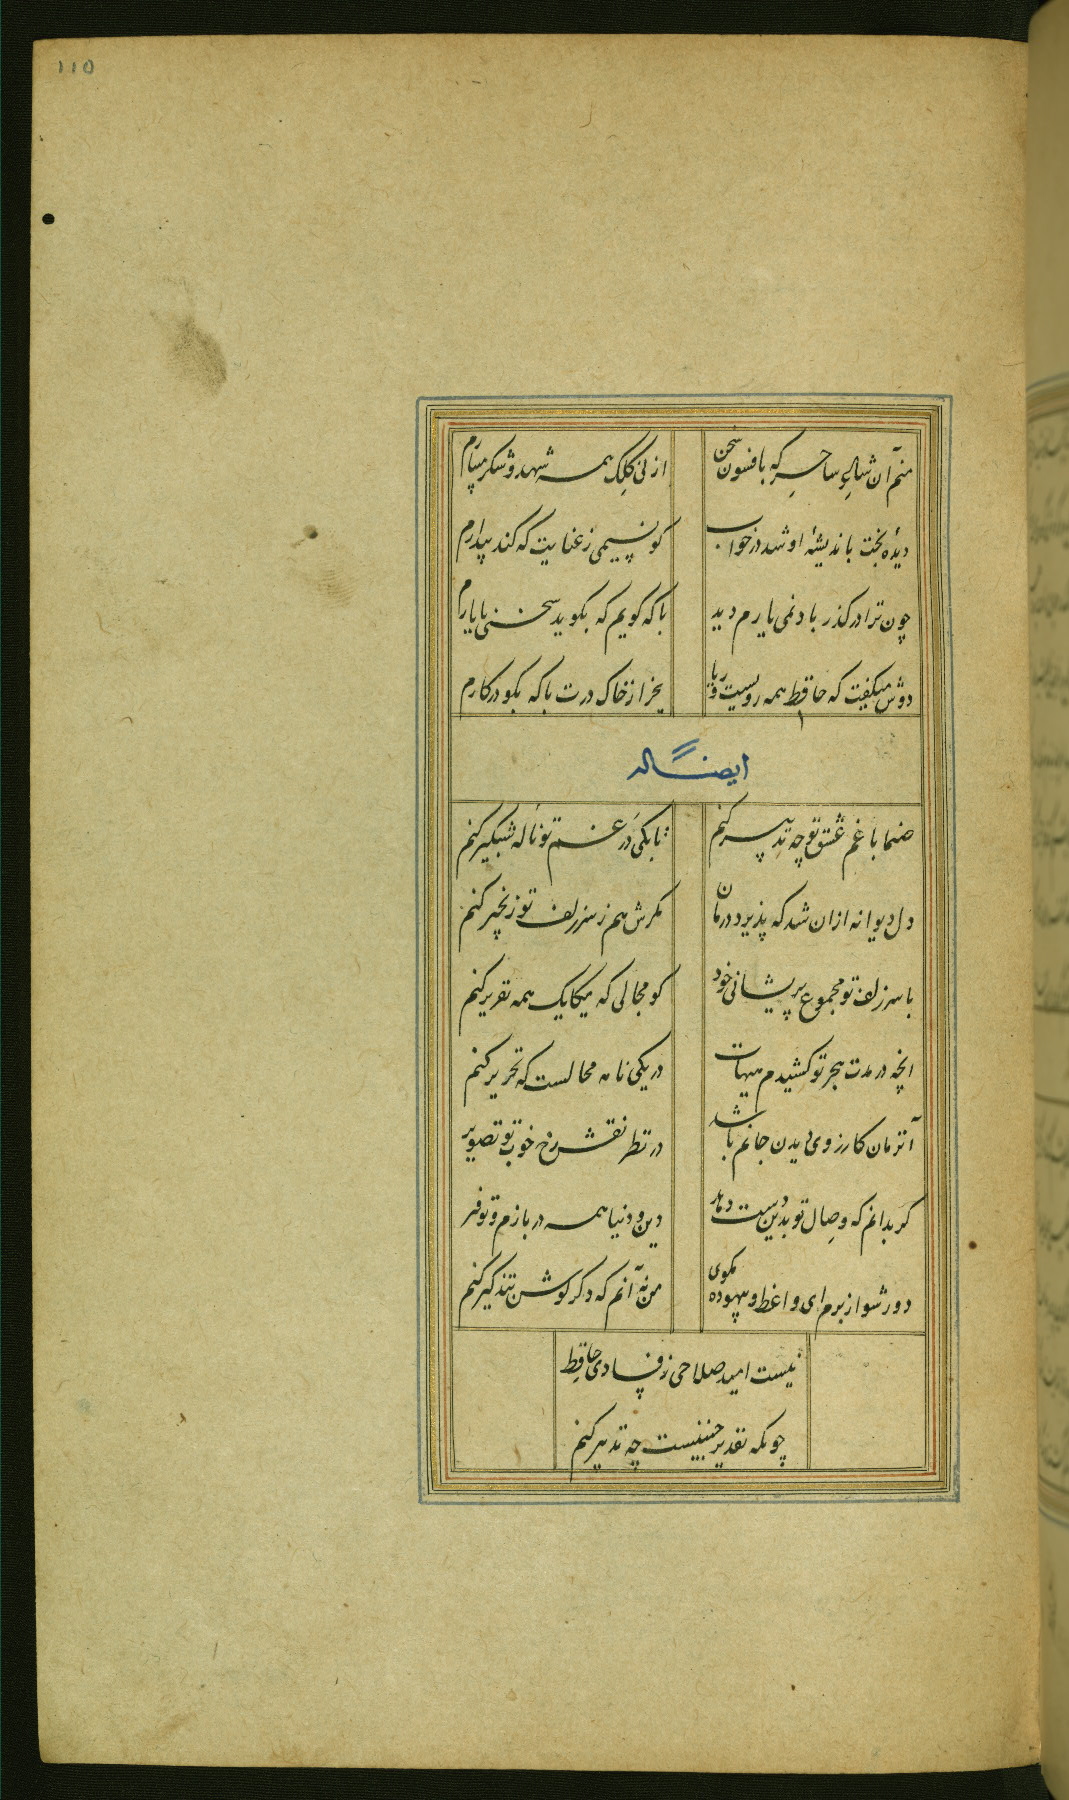 ۱۱۵
منم آن شاعر ساحر که بافسون سخن
از نی کلک همه شهد و شکر میبارم
دیدهٔ بخت باندیشهٔ او شد در خواب
کو نسیمی ز عنایت که کند بیدارم
چون ترا در گذر باد نمی یارم دید
با که گویم که بگوید سخنی با یارم
دوش میگفت که حافظ همه رویست و ریا
بجز از خاک درت با که بگو در کارم
ایضاً له
صنما با غم عشق تو چه تدبیر کنم
تا بکی در غم تو ناله شبگیر کنم
دل دیوانه ازان شد که پذیرد درمان
مگرش هم ز سر زلف تو زنجیر کنم
با سر زلف تو مجموع پریشانی خود
کو مجالی که یکایک همه تقریر کنم
انچه در مدت هجر تو کشیدم هیهات
در یکی نامه محالست که تحریر کنم
آنزمان کارزوی دیدن جانم باشد
در نظر نقش رخ خوب تو تصویر
گر بدانم که وصال تو بدین دست دهد
دین و دنیا همه در بازم و توفیر
دور شو از برم ای واعظ و بیهوده مگوی
من نه آنم که دگر گوش بتذکیر کنم
نیست امید صلاحی ز فسادی حافظ
چونکه تقدیر چنینست چه تدبیر کنم